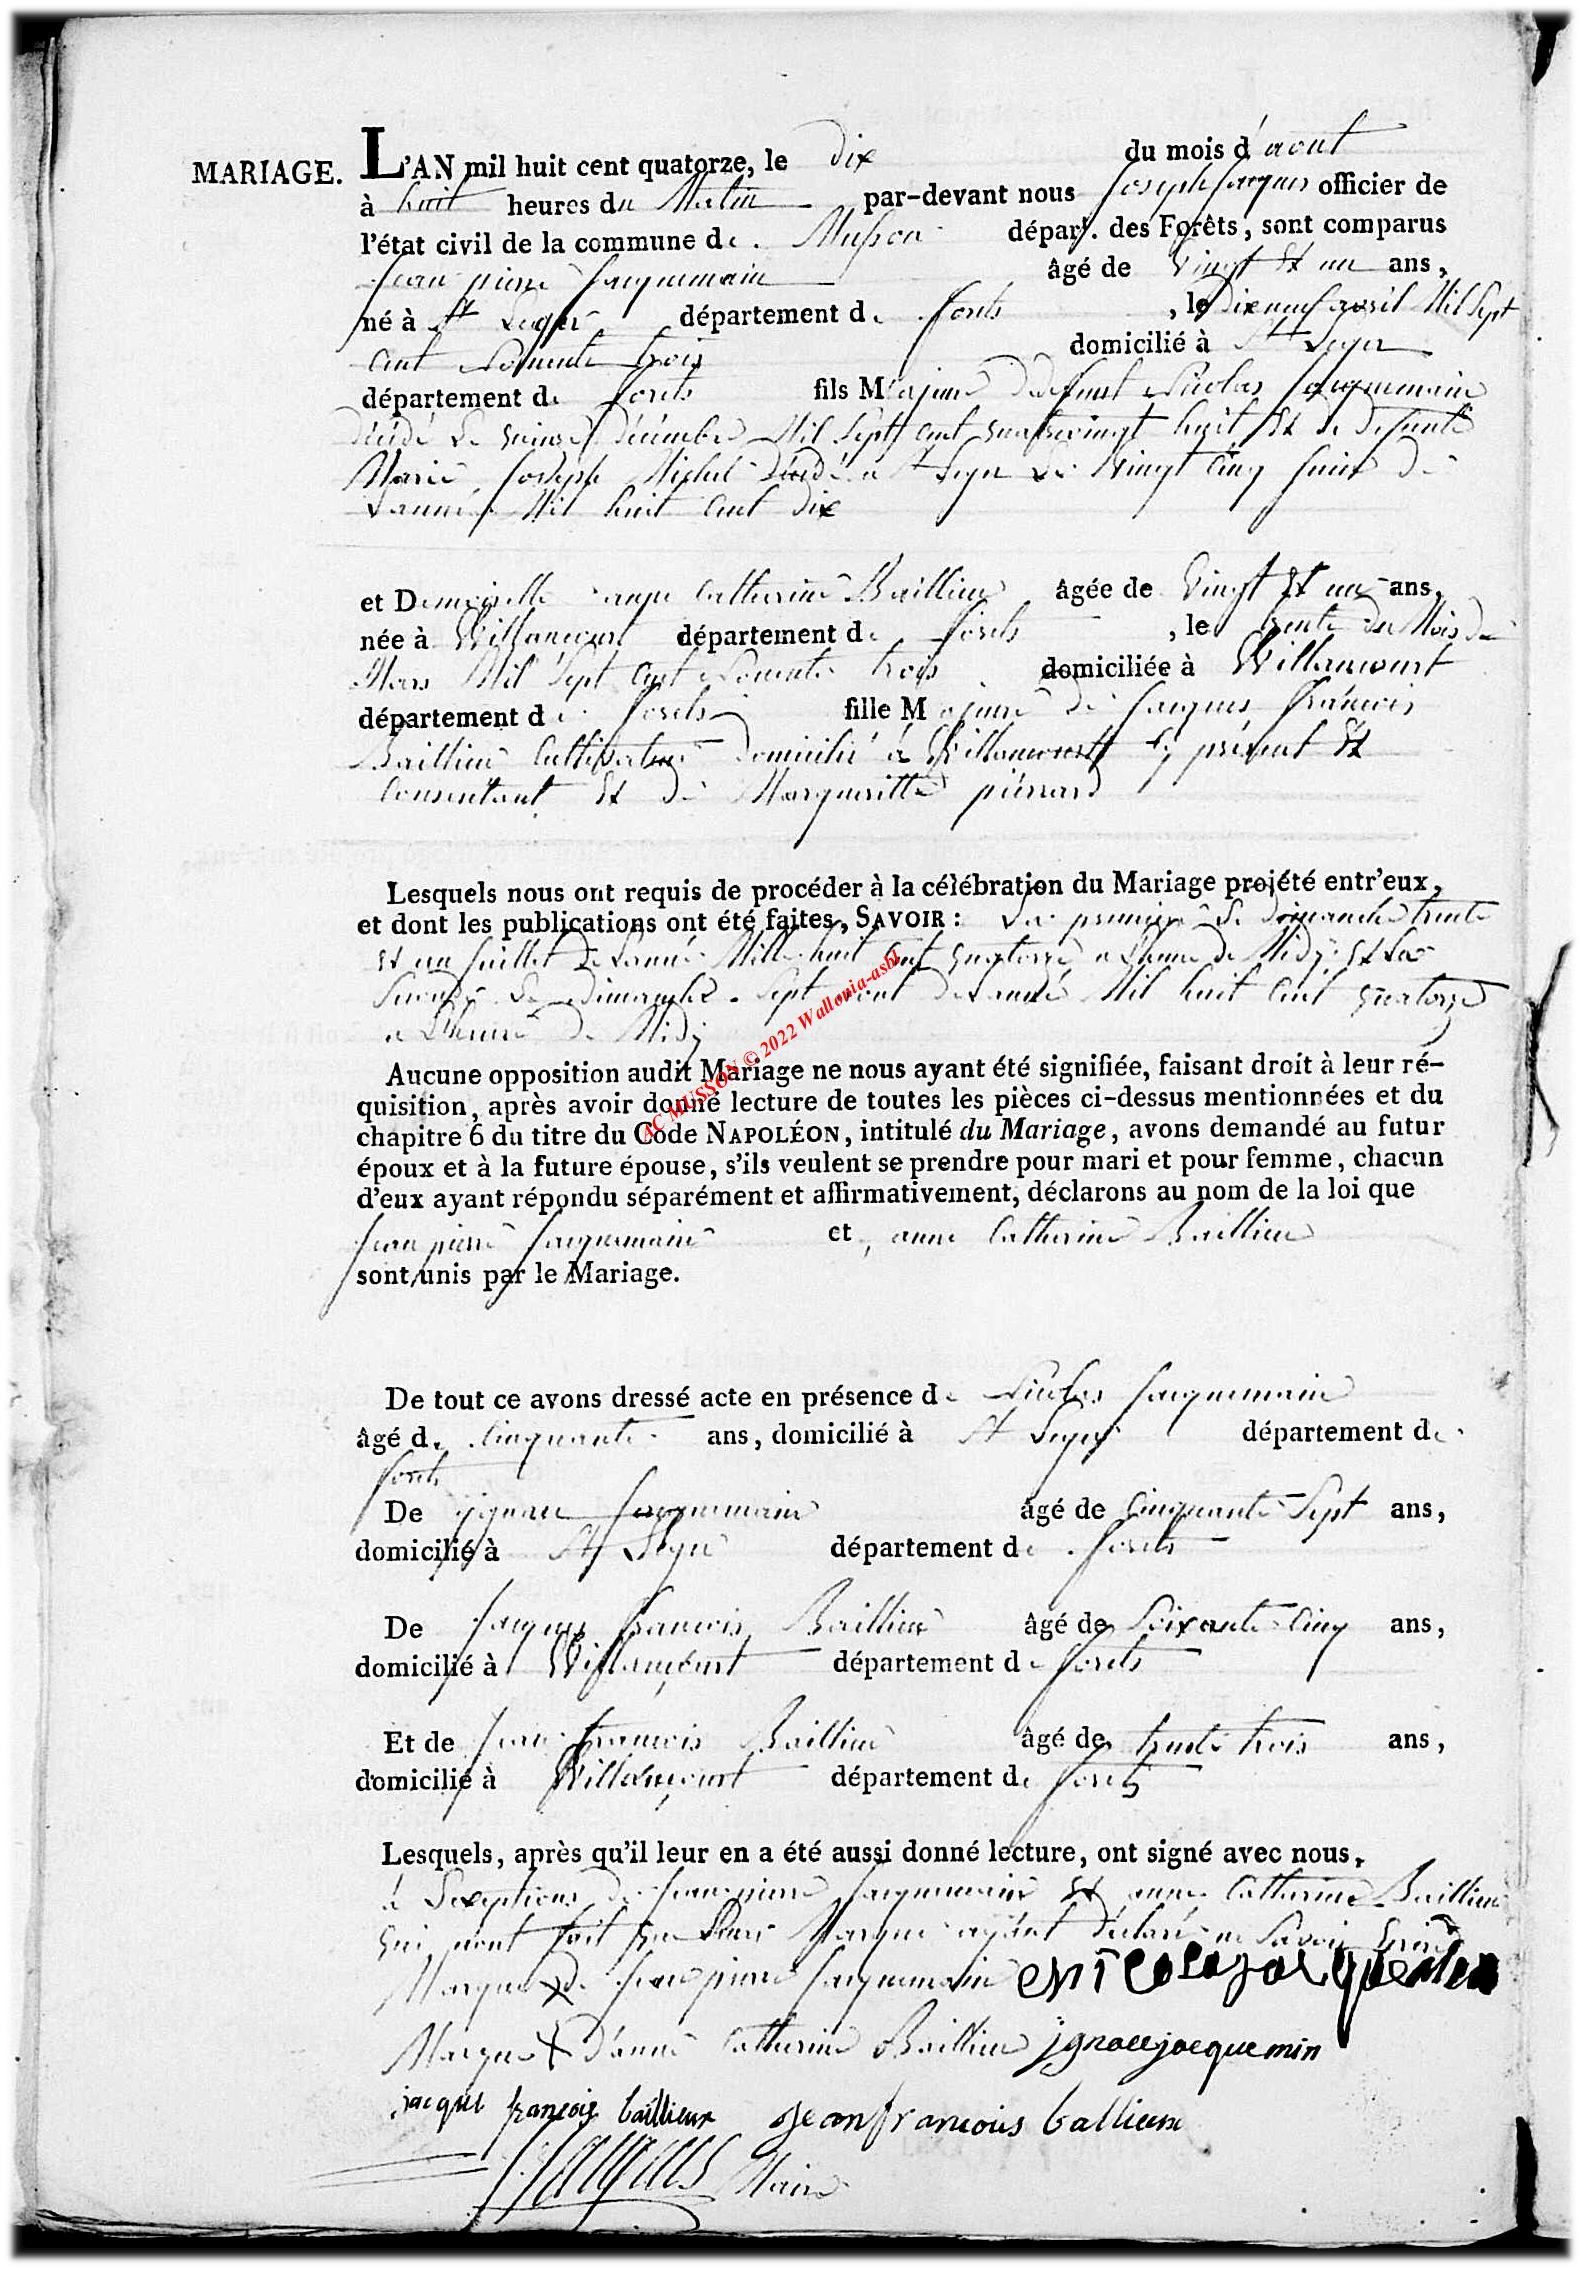 MARIAGE. L'AN mil huit cent quatorze, le dix du mois d'aout
à huit heures du Matin par-devant nous Joseph Jacques officier de
l'état civil de la commune de Musson départ. des Forêts, sont comparus
Jean pierre Jacquemain âgé de Vingt Et un ans,
né à St Leger département de forets, le Dixneuf avril Mil Sept
Cent Nonente trois domicilié à St Leger
département de forets fils Majeure De defunt Nicolas Jacquemain
décédé Le quinze Décembre Mil Sept Cent quatrevingt huit Et de defunte
Marie Joseph Michel Décédé a St Leger Le Vingt Cinq Juin De
Lannée Mil huit Cent Dix
et Demoiselle anne Catherine Baillieux âgée de Vingt Et un ans,
née à Willancourt département de forets, le trente du Mois de
Mars Mil Sept Cent Nonente trois domiciliée à Willancourt
département de forets fille Majeure de Jacques francois
Baillieux Cultivateur Domicilié à Willancourt Cy présent Et
Consentant Et De Margueritte piérrard
Lesquels nous ont requis de procéder à la célébration du Mariage projété entr'eux,
et dont les publications ont été faites, SAVOIR : La premiere Le Dimanche trente
Et un Juillet De Lannée Mille huit Cent quatorze a Lheure de Midy Et La
Seconde Le Dimanche Sept aout De Lannée Mil huit Cent quatorze
a Lheure De Midy
Aucune opposition audit Mariage ne nous ayant été signifiée, faisant droit à leur ré-
quisition, après avoir donné lecture de toutes les pièces ci-dessus mentionnées et du
chapitre 6 du titre du Code NAPOLÉON, intitulé du Mariage, avons demandé au futur
époux et à la future épouse, s'ils veulent se prendre pour mari et pour femme, chacun
d'eux ayant répondu séparément et affirmativement, déclarons au nom de la loi que
Jean pierre Jacquemain et anne Catherine Baillieux
sont unis par le Mariage.
AC MUSSON © 2022 Wallonia-asbl
De tout ce avons dressé acte en présence de Nicolas Jacquemain
âgé de Cinquante ans, domicilié à St Leger département de
forets
De ignace Jacquemain âgé de Cinquante Sept ans,
domicilié à St Leger département de forets
De Jacques francois Baillieux âgé de Soixante Cinq ans,
domicilié à Willancourt département de forets
Et de Jean francois Baillieux âgé de trente trois ans,
domicilié à Willancourt département de forets
Lesquels, après qu'il leur en a été aussi donné lecture, ont signé avec nous,
à Lexeptions de Jean pierre Jacquemain Et anne Catherine Baillieux
qui nont fait que Leurs Marque ayant Déclaré ne Savoir Ecrire
Marque X De Jean pierre Jacquemain nicola jacquemin
Marque X D'anne Catherine Baillieux jgnace jacquemin
jacque françois baillieux jean francois ballieux
J. Jacques Maire